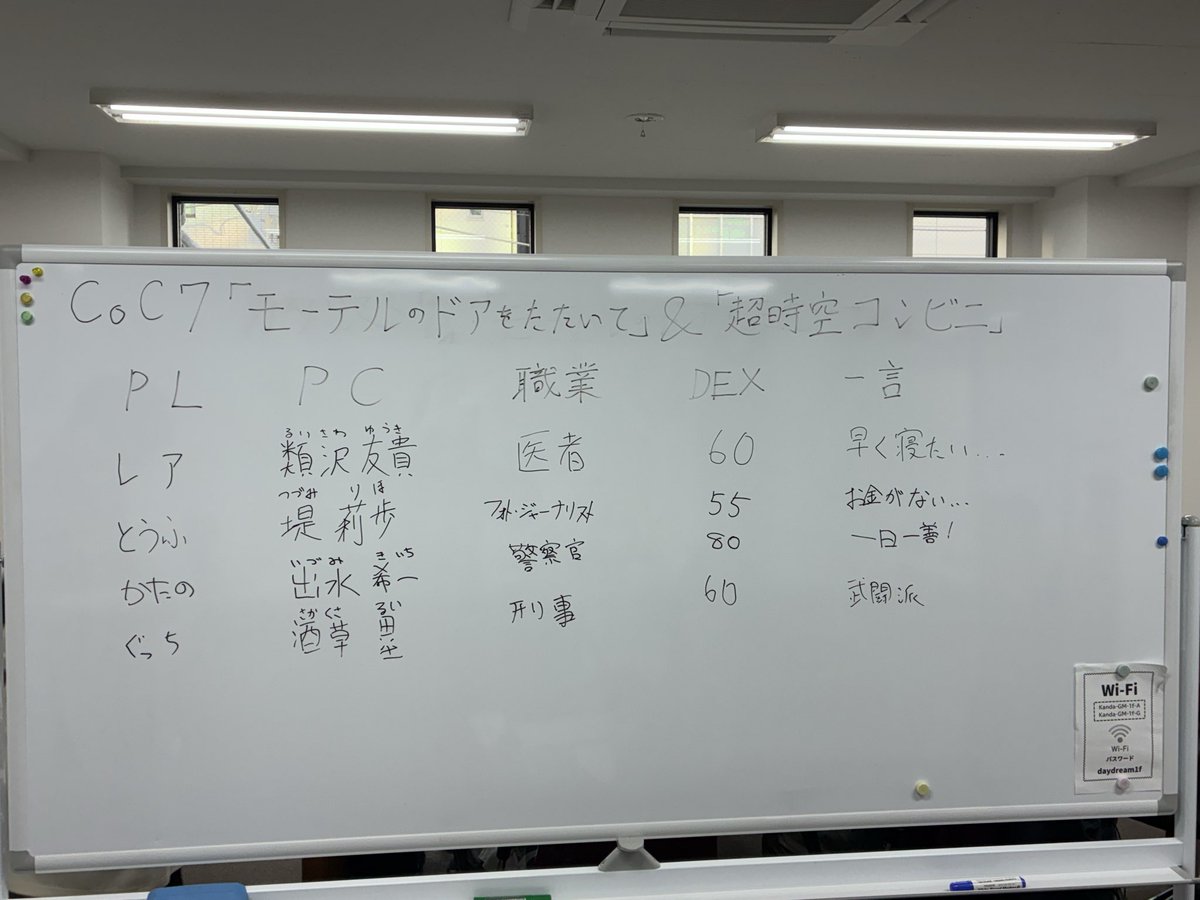 CoC7「モーテルのドアをたたいて」&「超時空コンビニ」
PL PC 職業 DEX 一言
るいさわ ゆうき
レア 類沢 友貴 医者 60 早く寝たい...
つづみ りほ
とうふ 堤 莉歩 フォト・ジャーナリスト 55 お金がない...
いづみ きいち
かたの 出水 希一 警察官 80 一日一善!
さかくさ るい
ぐっち 酒草 塁 刑事 60 武闘派
Wi-Fi
Kanda-GM-1f-A
Kanda-GM-1f-G
Wi-Fi
パスワード
daydream1f